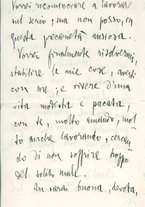 Vorrei ricominciare a lavorare
sul serio; ma non posso, in
questa precarietà ancora.
Vorrei finalmente risolvermi,
stabilire le mie cose, averti
con me; e vivere d'una
vita modesta e pacata,
con te, quasi amando; mol-
to anche lavorando, cercan-
do di non soffrire troppo
del solito male.
tu sarai buona, devota,